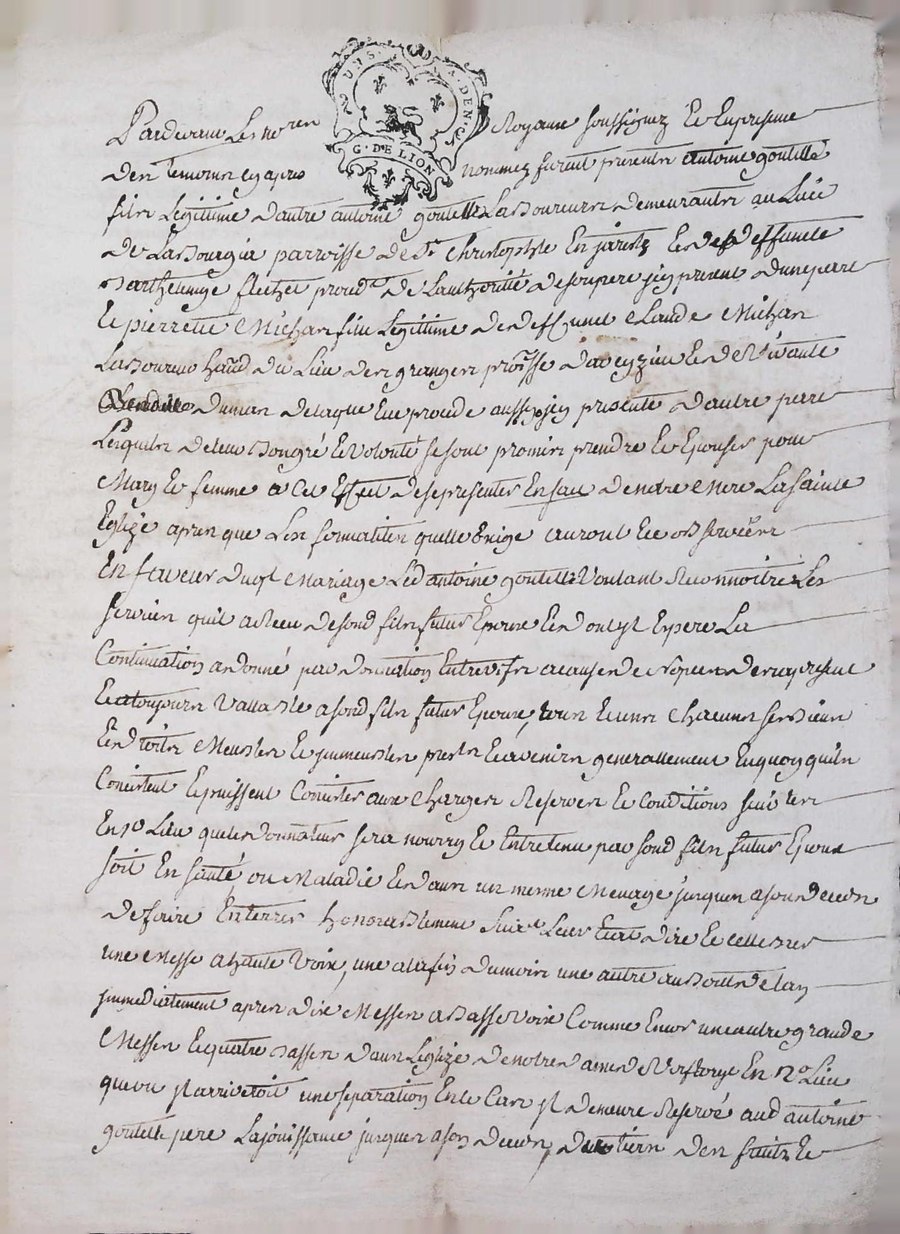 DUNS. DEN. S
G. DE LION
Pardevant Le no.ren Royaux soussignez Et En presence
Des Temoins cy apres nommez furent presents antoine goutelle
fils Legitime d'autre antoine goutelle Laboureurs demeurants au Lieu
De La Bourgia parroisse de St. Christophle En jarestz Et de deffuncte
Barthelemye flechet proudt. De L'authorité de son pere icy present d'une part
Et pierrette Michan fille Legitime de deffunct Claude Michan
Laboureur hand du Lieu des granges proisse d'aveyzieu Et de Vivante
Duman de laque Elle proude aussy icy presente d'autre part
Lesquels de leur Bon gré Et Volonté se sont promis prendre Et Epouser pour
Mary Et femme a Cet Effect de se presenter En face de notre Mere La Sainte
Eglize apres que Les formalites quelle Exige auront Eté observées
En faveur dugt Mariage Led antoine goutelle Voulant Reconnoitre Les
services quil a Receu de sond fils futur Epoux Et dont jl Espere La
Continuation a donné par donnation Entre vifs a cause de Nopces des a present
Et a toujours Vallable a sond fils futur Epoux, tous Et uns Chacuns ses Biens
Et droits Meubles Et jmmeubles prests Et avenirs generallement En quoy quils
Consistent Et puissent Consister aux Charges Reserves Et Conditions suivtes
En 1o Lieu que led donnateur sera nourry Et Entretenu par sond fils futur Epoux
soit En santé ou Maladie Et dans un meme Menage jusques a son deceds
De faire Enterrer honorablement suivt Leur Etat dire Et cellebrer
une Messe a haute Voix, une a la fin du mois une autre au Bout de l'an
jmmediatement apres dix Messes a Basse Voix Comme Encor une autre grande
Messe Et quatre Basses dans L'Eglize de notre dame de En 2o Lieu
que ou jl arriveroit une separation En Ce Cas jl demeure Reservé aud antoine
goutelle pere La jouissance jusques a son deceds, du tiers des fruits Et